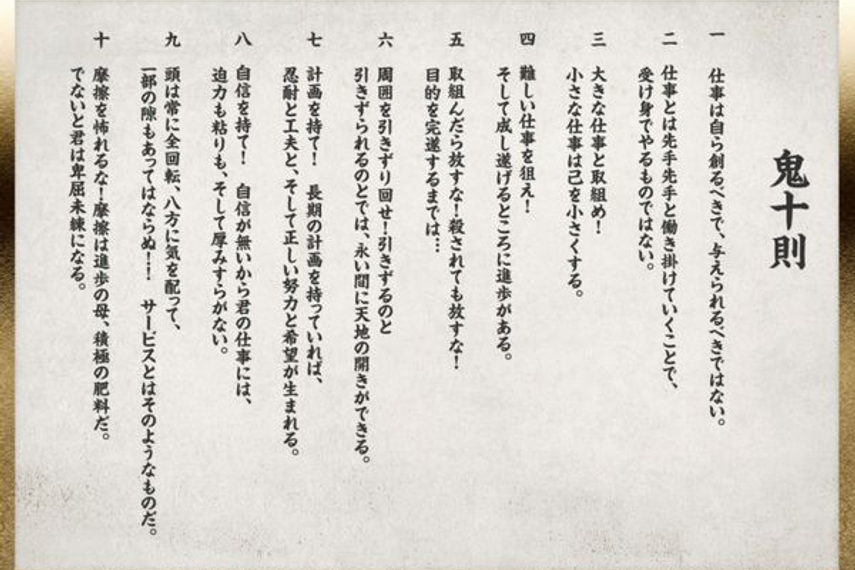 鬼十則
一 仕事は自ら創るべきで、与えられるべきではない。
二 仕事とは先手先手と働き掛けていくことで、
受け身でやるものではない。
三 大きな仕事と取組め!
小さな仕事は己を小さくする。
四 難しい仕事を狙え!
そして成し遂げるところに進歩がある。
五 取組んだら放すな!殺されても放すな!
目的を完遂するまでは…
六 周囲を引きずり回せ!引きずるのと
引きずられるのとでは、永い間に天地の開きができる。
七 計画を持て! 長期の計画を持っていれば、
忍耐と工夫と、そして正しい努力と希望が生まれる。
八 自信を持て! 自信が無いから君の仕事には、
迫力も粘りも、そして厚みすらがない。
九 頭は常に全回転、八方に気を配って、
一部の隙もあってはならぬ!! サービスとはそのようなものだ。
十 摩擦を怖れるな!摩擦は進歩の母、積極の肥料だ。
でないと君は卑屈未練になる。